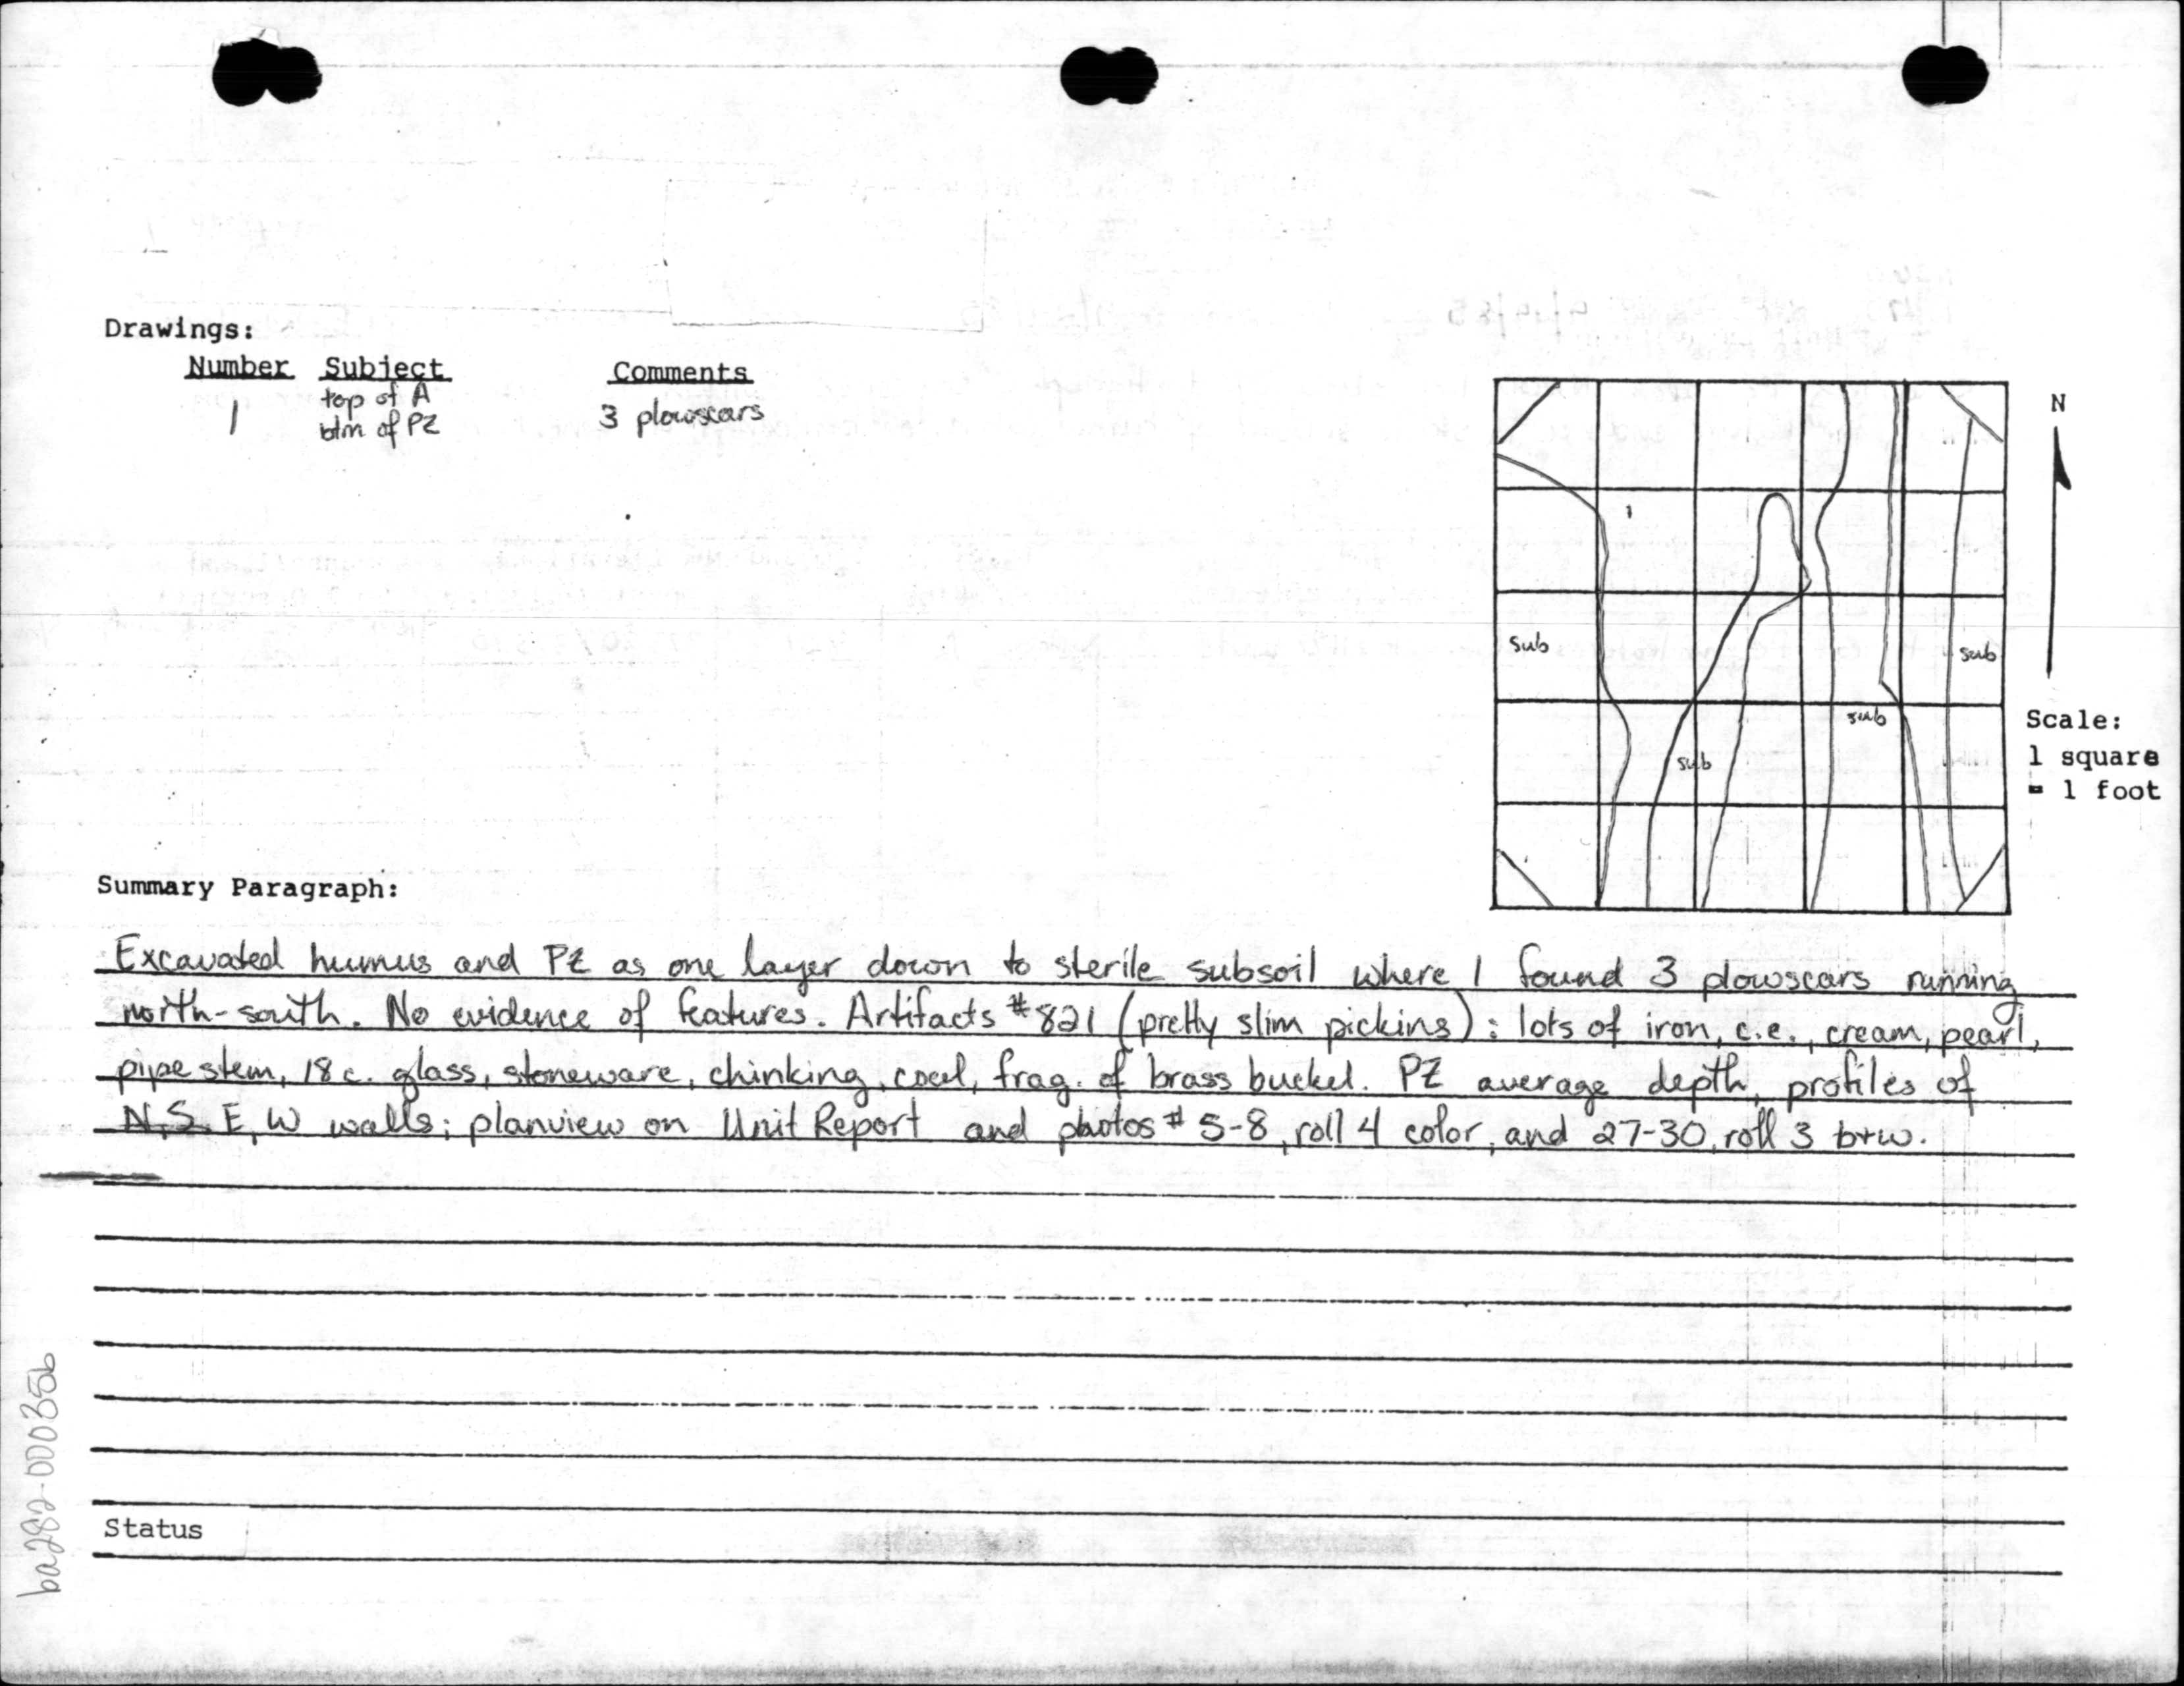 Drawings:
Number Subject Comments
1 top of A 3 plowscars
btm of PZ
N
1
sub
sub
sub
sub
Scale:
1 square
= 1 foot
Summary Paragraph:
Excavated humus and PZ as one layer down to sterile subsoil where I found 3 plowscars running
north-south. No evidence of features. Artifacts #821 (pretty slim pickins): lots of iron, c.e., cream, pearl,
pipe stem, 18 c. glass, stoneware, chinking, coal, frag. of brass buckel. PZ average depth, profiles of
N, S, E, W walls; planview on Unit Report and photos # 5-8, roll 4 color, and 27-30, roll 3 b+w.
Status
ba282-00035b